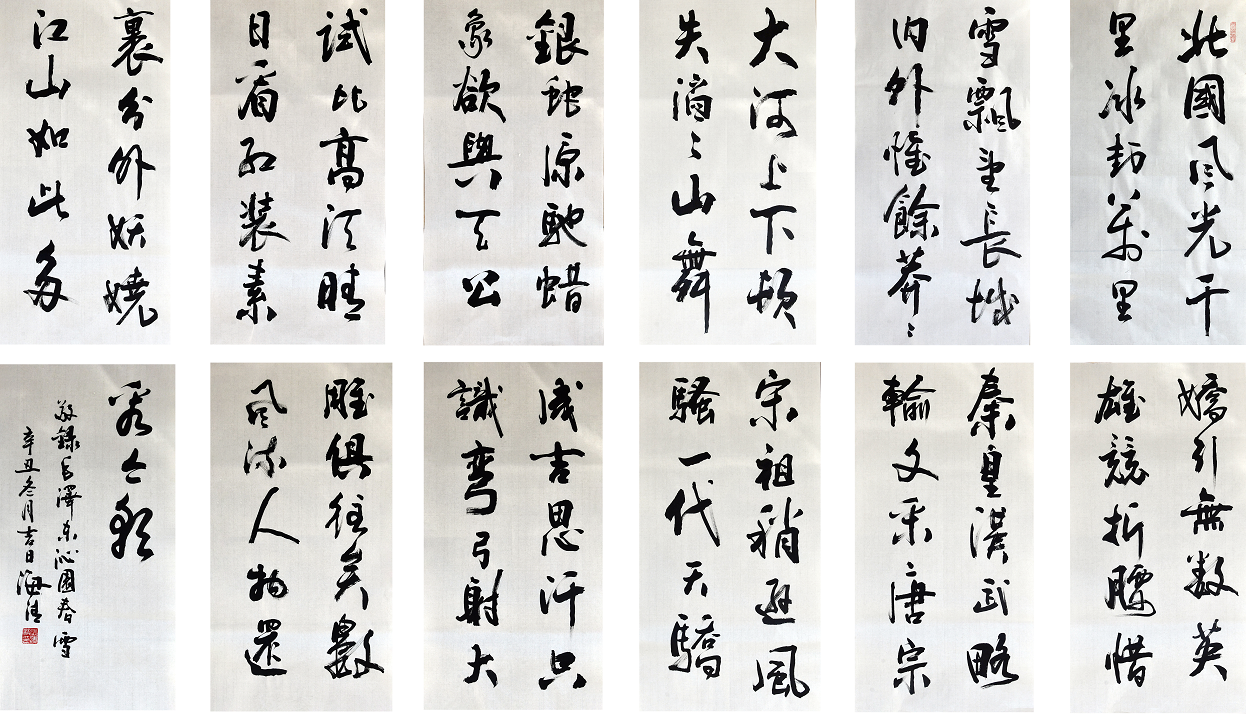 北國风光千
里冰封萬里
雪飄望長城
内外惟餘莽々
大河上下頓
失滔々山舞
銀蛇原馳蜡
象欲與天公
試比高须晴
日看红装素
裹分外妖嬈
江山如此多
嬌引無数英
雄競折腰惜
秦皇漢武略
輸文采唐宗
宋祖稍遜風
騷一代天驕
成吉思汗只
識弯弓射大
雕俱往矣數
风流人物還
看今朝
敬錄毛澤东沁園春雪
辛丑冬月吉日海清